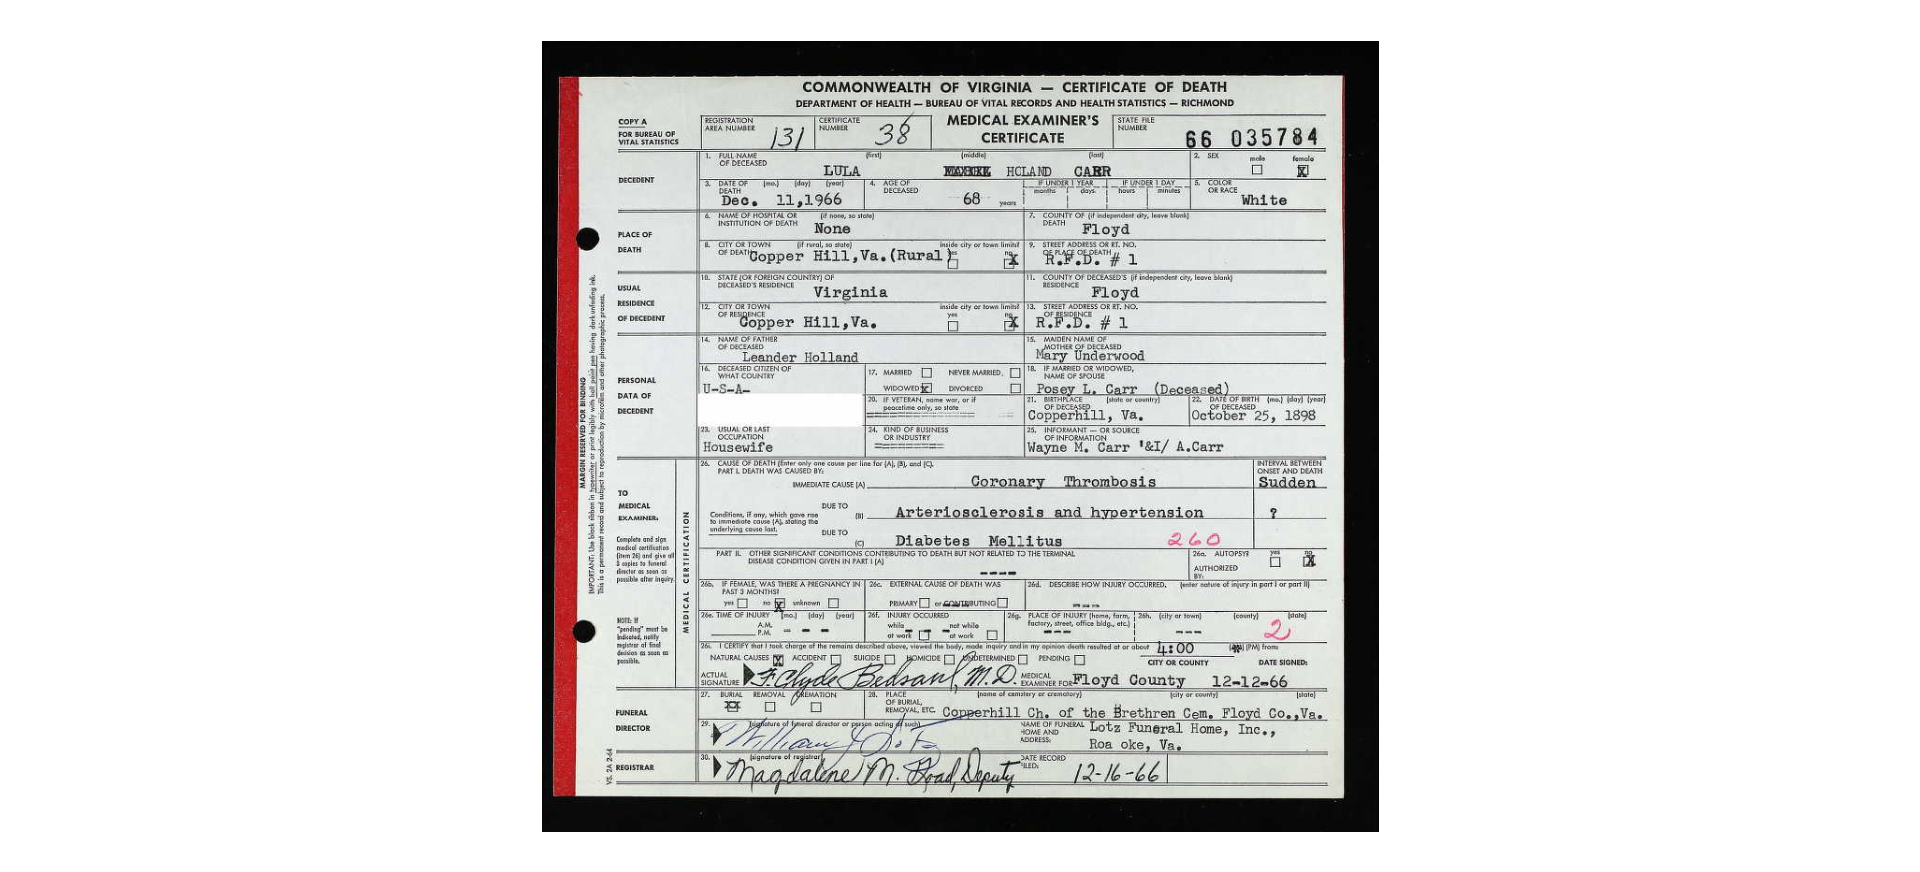 COMMONWEALTH OF VIRGINIA — CERTIFICATE OF DEATH
DEPARTMENT OF HEALTH — BUREAU OF VITAL RECORDS AND HEALTH STATISTICS — RICHMOND
COPY A
FOR BUREAU OF
VITAL STATISTICS
REGISTRATION
AREA NUMBER 131
CERTIFICATE
NUMBER 38
MEDICAL EXAMINER'S
CERTIFICATE
STATE FILE
NUMBER 66 035784
DECEDENT
1. FULL NAME OF DECEASED (first) (middle) (last)
LULA HOLAND CARR
2. SEX male female X
3. DATE OF DEATH (mo.) (day) (year)
Dec. 11,1966
4. AGE OF DECEASED 68 years
IF UNDER 1 YEAR months days
IF UNDER 1 DAY hours minutes
5. COLOR OR RACE White
PLACE OF
DEATH
6. NAME OF HOSPITAL OR INSTITUTION OF DEATH (if none, so state)
None
7. COUNTY OF DEATH (if independent city, leave blank)
Floyd
8. CITY OR TOWN OF DEATH (if rural, so state) inside city or town limits? yes no X
Copper Hill,Va.(Rural)
9. STREET ADDRESS OR RT. NO. OF PLACE OF DEATH
R.F.D. # 1
USUAL
RESIDENCE
OF DECEDENT
10. STATE (OR FOREIGN COUNTRY) OF DECEASED'S RESIDENCE
Virginia
11. COUNTY OF DECEASED'S RESIDENCE (if independent city, leave blank)
Floyd
12. CITY OR TOWN OF RESIDENCE inside city or town limits? yes no X
Copper Hill,Va.
13. STREET ADDRESS OR RT. NO. OF RESIDENCE
R.F.D. # 1
PERSONAL
DATA OF
DECEDENT
14. NAME OF FATHER OF DECEASED
Leander Holland
15. MAIDEN NAME OF MOTHER OF DECEASED
Mary Underwood
16. DECEASED CITIZEN OF WHAT COUNTRY
U-S-A-
17. MARRIED NEVER MARRIED WIDOWED X DIVORCED
18. IF MARRIED OR WIDOWED, NAME OF SPOUSE
Posey L. Carr (Deceased)
20. IF VETERAN, name war, or if peacetime only, so state
21. BIRTHPLACE OF DECEASED (state or country)
Copperhill, Va.
22. DATE OF BIRTH OF DECEASED (mo.) (day) (year)
October 25, 1898
23. USUAL OR LAST OCCUPATION
Housewife
24. KIND OF BUSINESS OR INDUSTRY
25. INFORMANT — OR SOURCE OF INFORMATION
Wayne M. Carr '&I/ A.Carr
MARGIN RESERVED FOR BINDING
IMPORTANT: Use black ribbon in typewriter or print legibly with ball point pen having dark unfading ink.
This is a permanent record and subject to reproduction by microfilm and other photographic process.
TO
MEDICAL
EXAMINER:
Complete and sign
medical certification
(item 26) and give all
3 copies to funeral
director as soon as
possible after inquiry.
NOTE: If
"pending" must be
indicated, notify
registrar of final
decision as soon as
possible.
MEDICAL CERTIFICATION
26. CAUSE OF DEATH (Enter only one cause per line for (A), (B), and (C).
PART I. DEATH WAS CAUSED BY:
INTERVAL BETWEEN
ONSET AND DEATH
IMMEDIATE CAUSE (A) Coronary Thrombosis Sudden
Conditions, if any, which gave rise
to immediate cause (A), stating the
underlying cause last.
DUE TO
(B) Arteriosclerosis and hypertension ?
DUE TO
(C) Diabetes Mellitus 260
PART II. OTHER SIGNIFICANT CONDITIONS CONTRIBUTING TO DEATH BUT NOT RELATED TO THE TERMINAL
DISEASE CONDITION GIVEN IN PART I (A)
----
26a. AUTOPSY? yes no X
AUTHORIZED
BY:
26b. IF FEMALE, WAS THERE A PREGNANCY IN PAST 3 MONTHS?
yes no X unknown
26c. EXTERNAL CAUSE OF DEATH WAS
PRIMARY or CONTRIBUTING
26d. DESCRIBE HOW INJURY OCCURRED. (enter nature of injury in part I or part II)
---
26e. TIME OF INJURY (mo.) (day) (year)
A.M.
P.M. - - -
26f. INJURY OCCURRED
while at work not while at work
26g. PLACE OF INJURY (home, farm, factory, street, office bldg., etc.)
---
26h. (city or town) (county) (state)
--- 2
26i. I CERTIFY that I took charge of the remains described above, viewed the body, made inquiry and in my opinion death resulted at or about 4:00 (PM) from:
NATURAL CAUSES X ACCIDENT SUICIDE HOMICIDE UNDETERMINED PENDING
CITY OR COUNTY DATE SIGNED:
ACTUAL
SIGNATURE M.D.
MEDICAL
EXAMINER FOR Floyd County 12-12-66
FUNERAL
DIRECTOR
27. BURIAL REMOVAL CREMATION
XX
28. PLACE OF BURIAL, REMOVAL, ETC. (name of cemetery or crematory) (city or county) (state)
Copperhill Ch. of the Brethren Cem. Floyd Co.,Va.
29. (signature of funeral director or person acting as such)
NAME OF FUNERAL
HOME AND
ADDRESS:
Lotz Funeral Home, Inc.,
Roa oke, Va.
REGISTRAR
30. (signature of registrar)
Magdalene M. Deputy
DATE RECORD
FILED: 12-16-66
VS. 2A 2-64